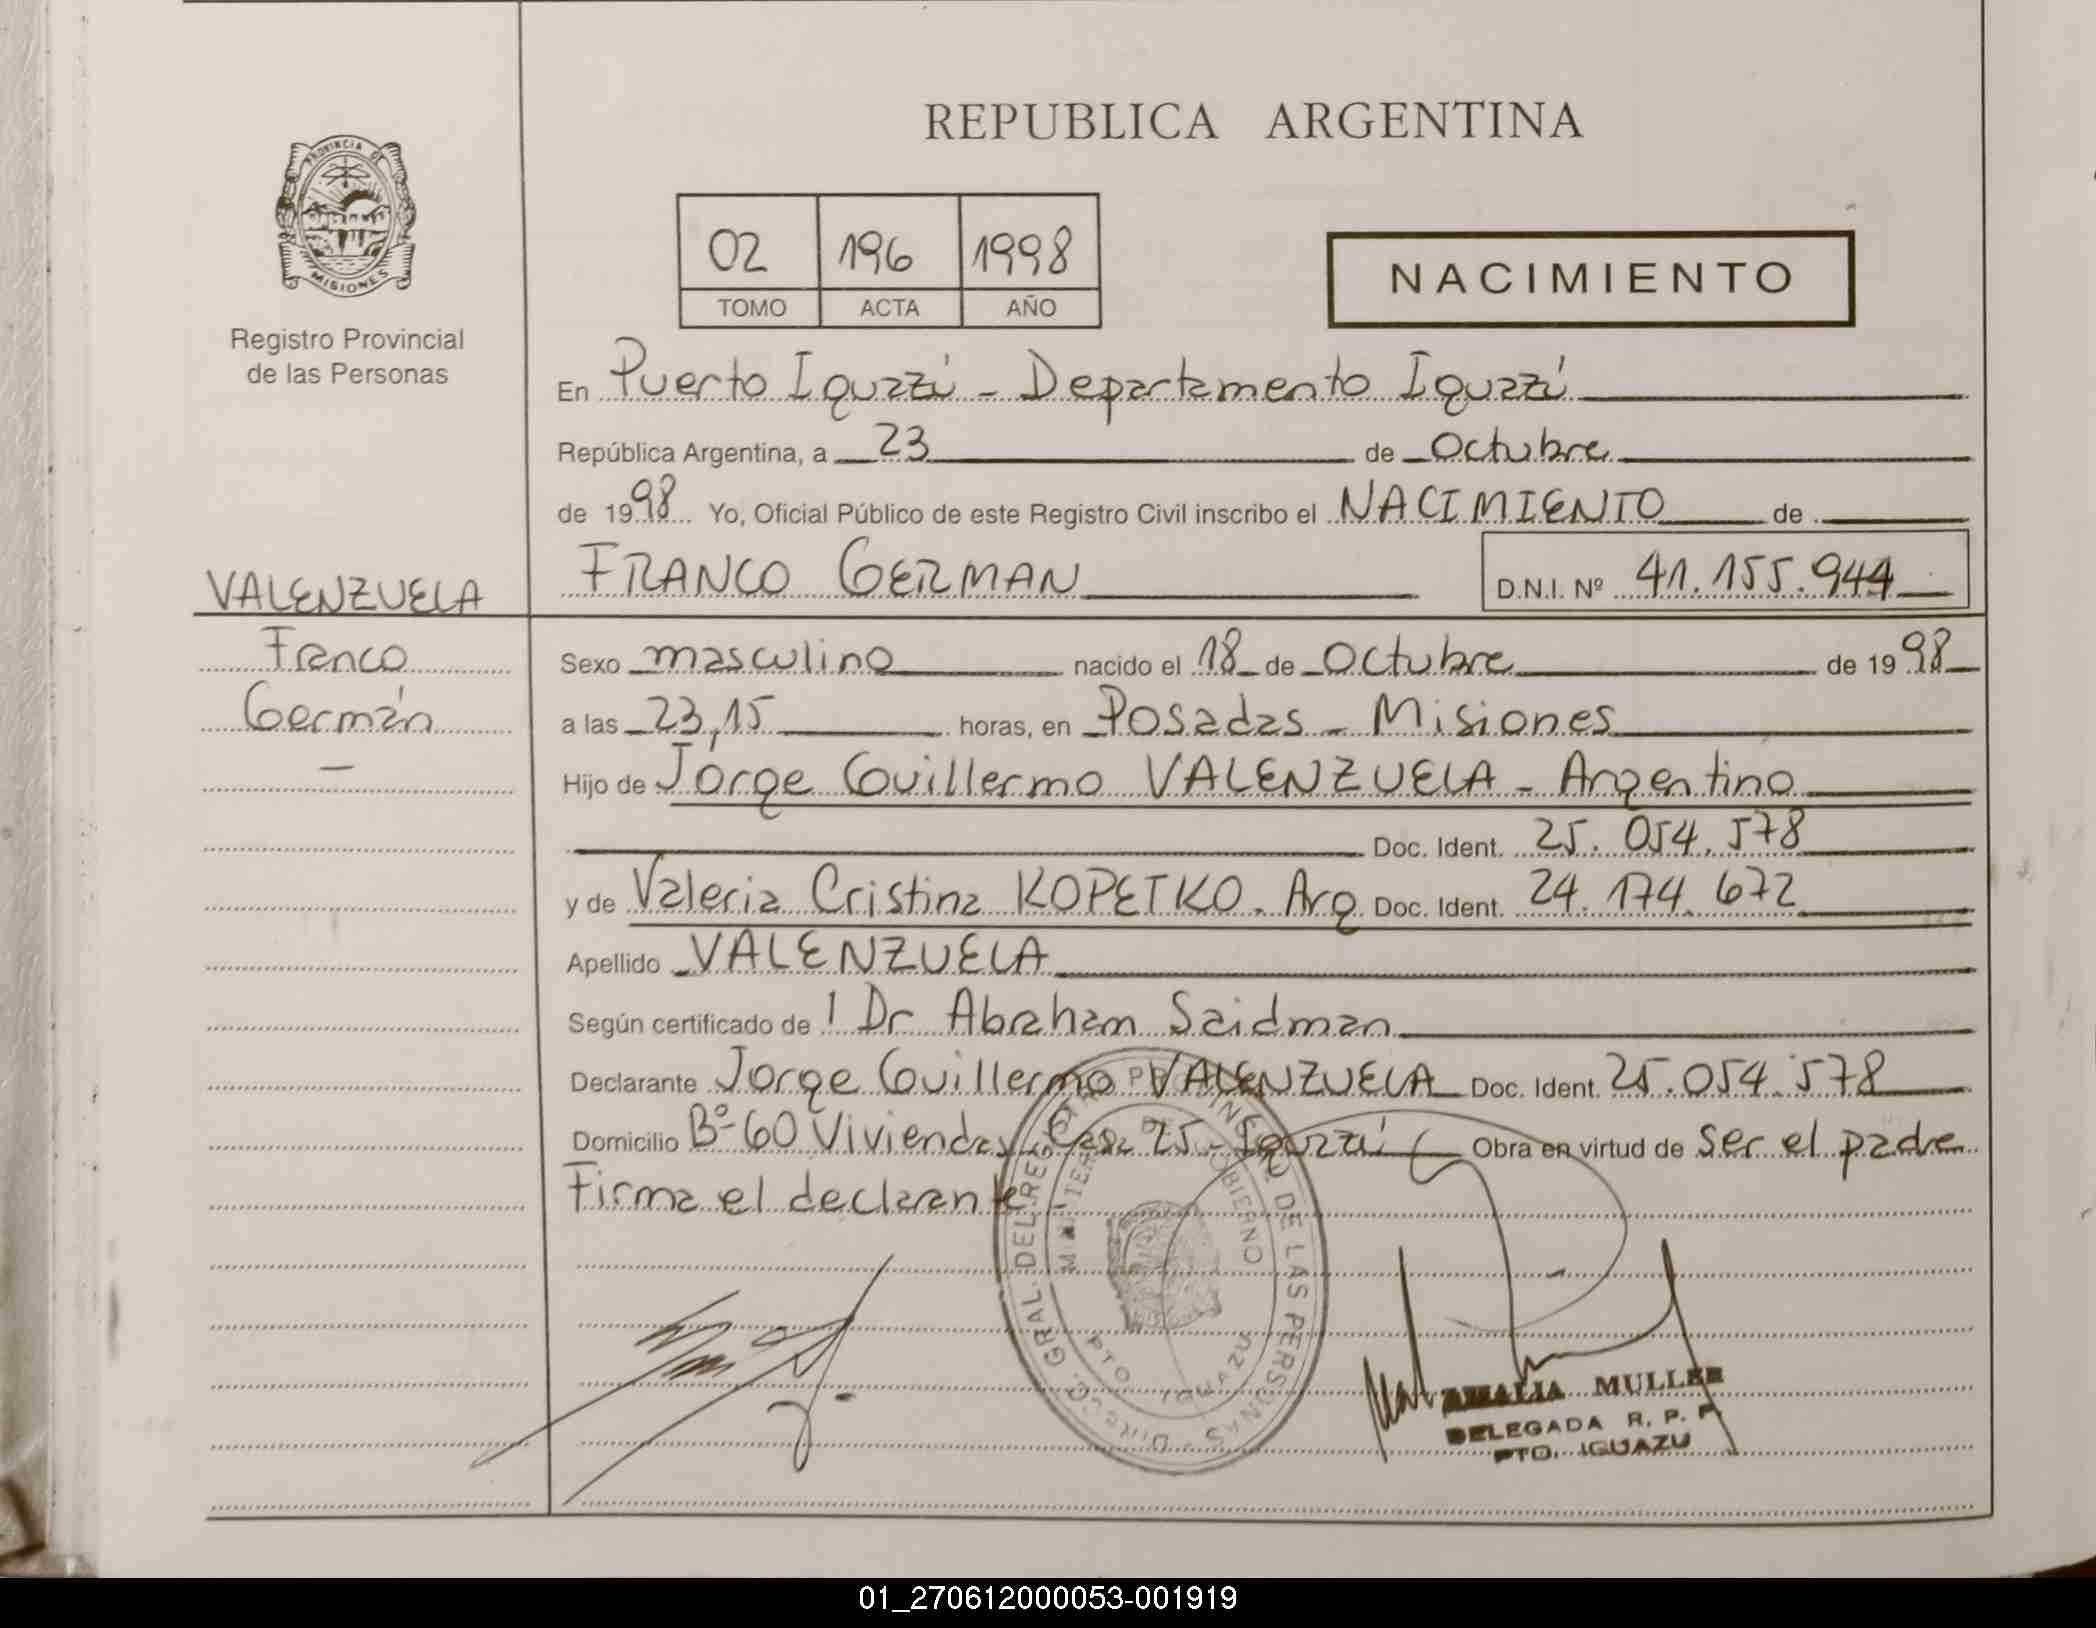 REPUBLICA ARGENTINA
PROVINCIA DE
MISIONES
Registro Provincial
de las Personas
02 196 1998
TOMO ACTA AÑO
NACIMIENTO
En Puerto Iguazú - Departamento Iguazú
República Argentina, a 23 de Octubre
de 1998 Yo, Oficial Público de este Registro Civil inscribo el NACIMIENTO de
VALENZUELA
FRANCO GERMAN D.N.I. Nº 41.155.944
Franco
Germán
Sexo masculino nacido el 18 de Octubre de 1998
a las 23,15 horas, en Posadas - Misiones
Hijo de Jorge Guillermo VALENZUELA - Argentino
Doc. Ident. 25.054.578
y de Valeria Cristina KOPETKO. Arg Doc. Ident. 24.174.672
Apellido VALENZUELA
Según certificado de l Dr Abraham Saidman
Declarante Jorge Guillermo VALENZUELA Doc. Ident. 25.054.578
Domicilio Bº 60 Viviendas Casa 25 - Iguazú Obra en virtud de ser el padre
Firma el declarante
DIRECC. GRAL. DEL REGISTRO PROVINCIAL DE LAS PERSONAS
MINISTERIO DE GOBIERNO
PTO IGUAZU
AMALIA MULLER
DELEGADA R. P. P.
PTO. IGUAZU
01_270612000053-001919